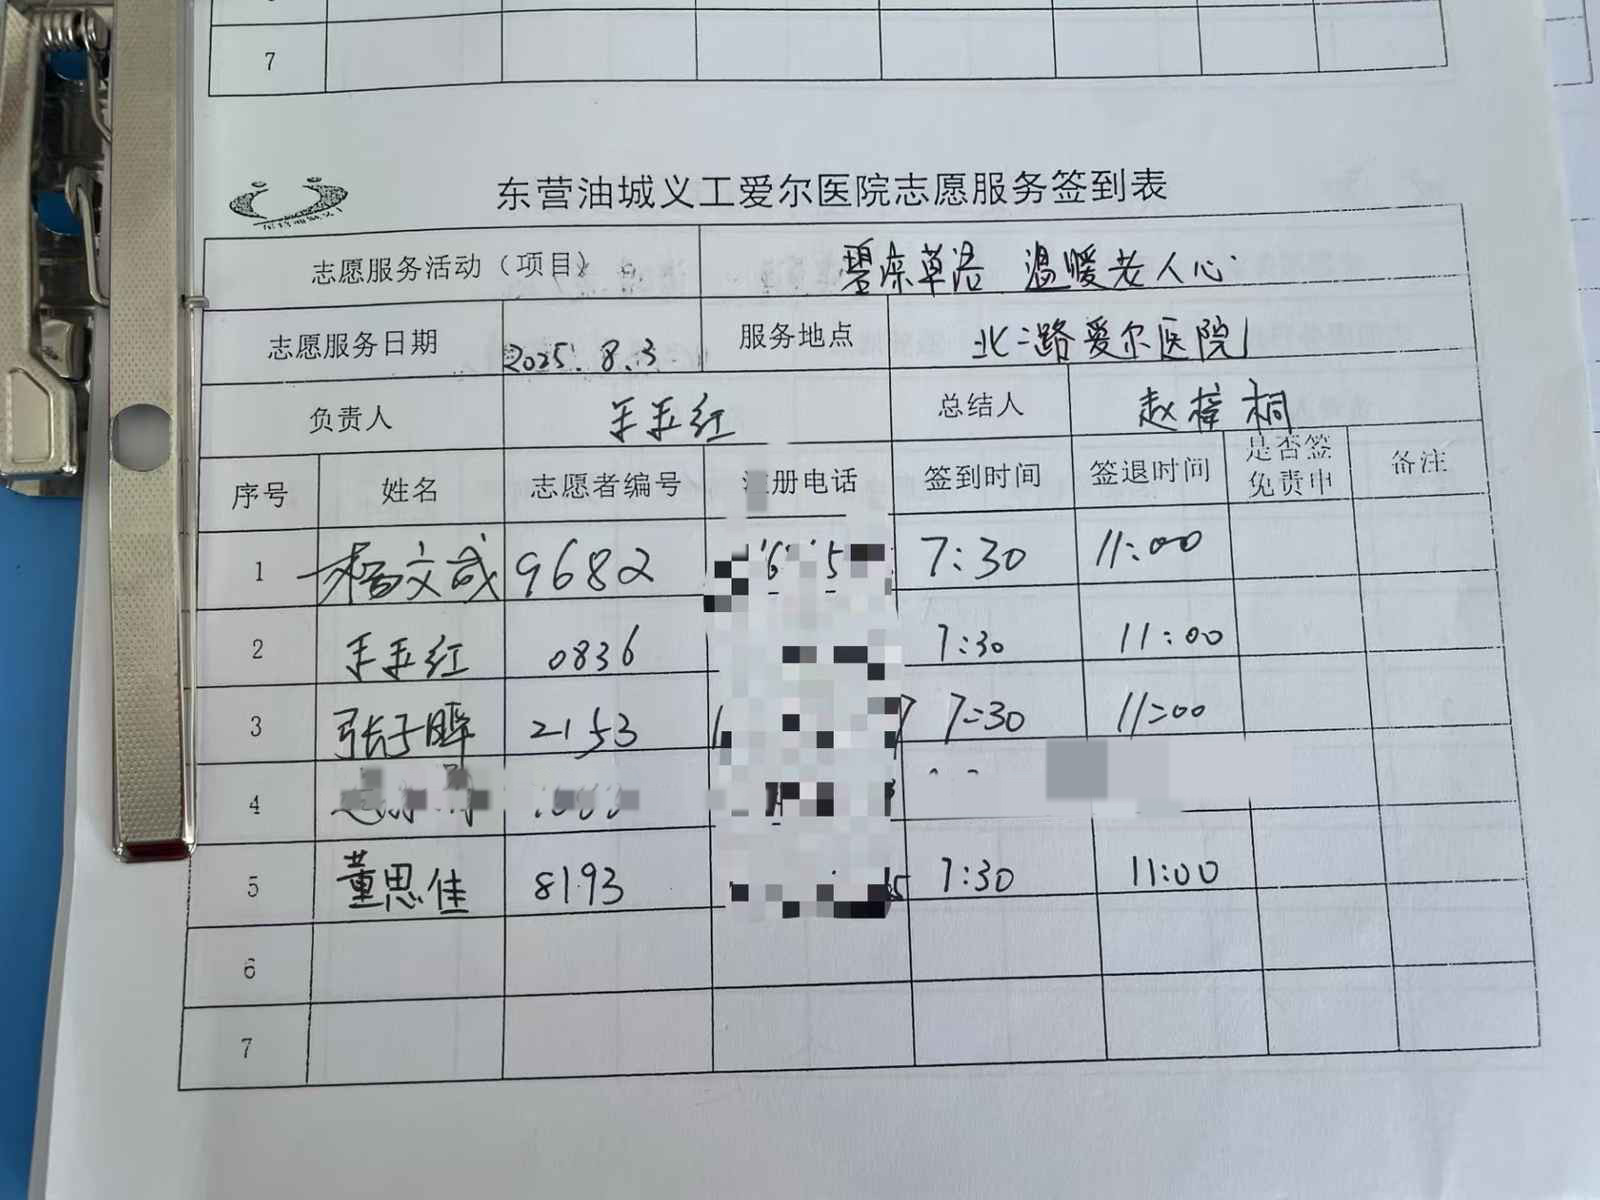 7
东营油城义工爱尔医院志愿服务签到表
志愿服务活动（项目） 草 温暖老人心
志愿服务日期 2025.8.3 服务地点 北二路爱尔医院
负责人 王玉红 总结人 赵梓桐
序号 姓名 志愿者编号 册电话 签到时间 签退时间 是否签免责申 备注
1 杨文成 9682 7:30 11:00
2 王玉红 0836 7:30 11:00
3 张子晖 2153 7:30 11:00
4
5 董思佳 8193 7:30 11:00
6
7